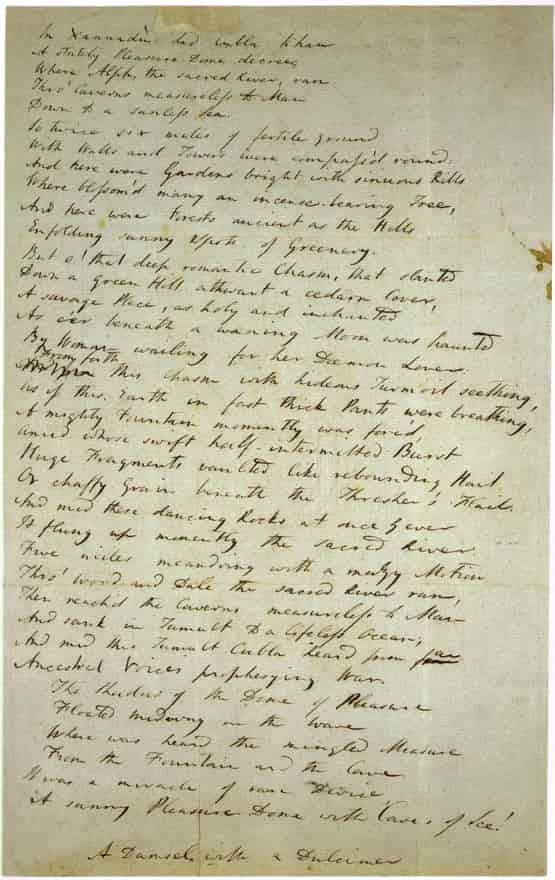 In Xannadù did Cubla Khan
A stately Pleasure Dome decree;
Where Alph, the sacred River, ran
Thro' Caverns measureless to Man
Down to a sunless Sea.
So twice six miles of fertile ground
With Walls and Towers were compass'd round:
And here were Gardens bright with sinuous Rills
Where blossom'd many an incense-bearing Tree,
And here were Forests ancient as the Hills
Enfolding sunny Spots of Greenery.
But o! that deep romantic Chasm, that slanted
Down a green Hill athwart a cedarn Cover,
A savage Place, as holy and inchanted
As e'er beneath a waning Moon was haunted
By Woman wailing for her Daemon Lover:
From forth this Chasm with hideous Turmoil seething,
As if this Earth in fast thick Pants were breathing,
A mighty Fountain momently was forc'd,
Amid whose swift half-intermitted Burst
Huge Fragments vaulted like rebounding Hail,
Or chaffy Grain beneath the Thresher's Flail.
And mid these dancing Rocks at once & ever
It flung up momently the sacred River.
Five miles meandring with a mazy Motion
Thro' Wood and Dale the sacred River ran,
Then reach'd the Caverns measureless to Man
And sank in Tumult to a lifeless Ocean;
And mid this Tumult Cubla heard from far
Ancestral Voices prophesying War.
The Shadow of the Dome of Pleasure
Floated midway on the Wave
Where was heard the mingled Measure
From the Fountain and the Cave.
It was a miracle of rare Device
A sunny Pleasure-Dome with Caves of Ice!
A Damsel with a Dulcimer